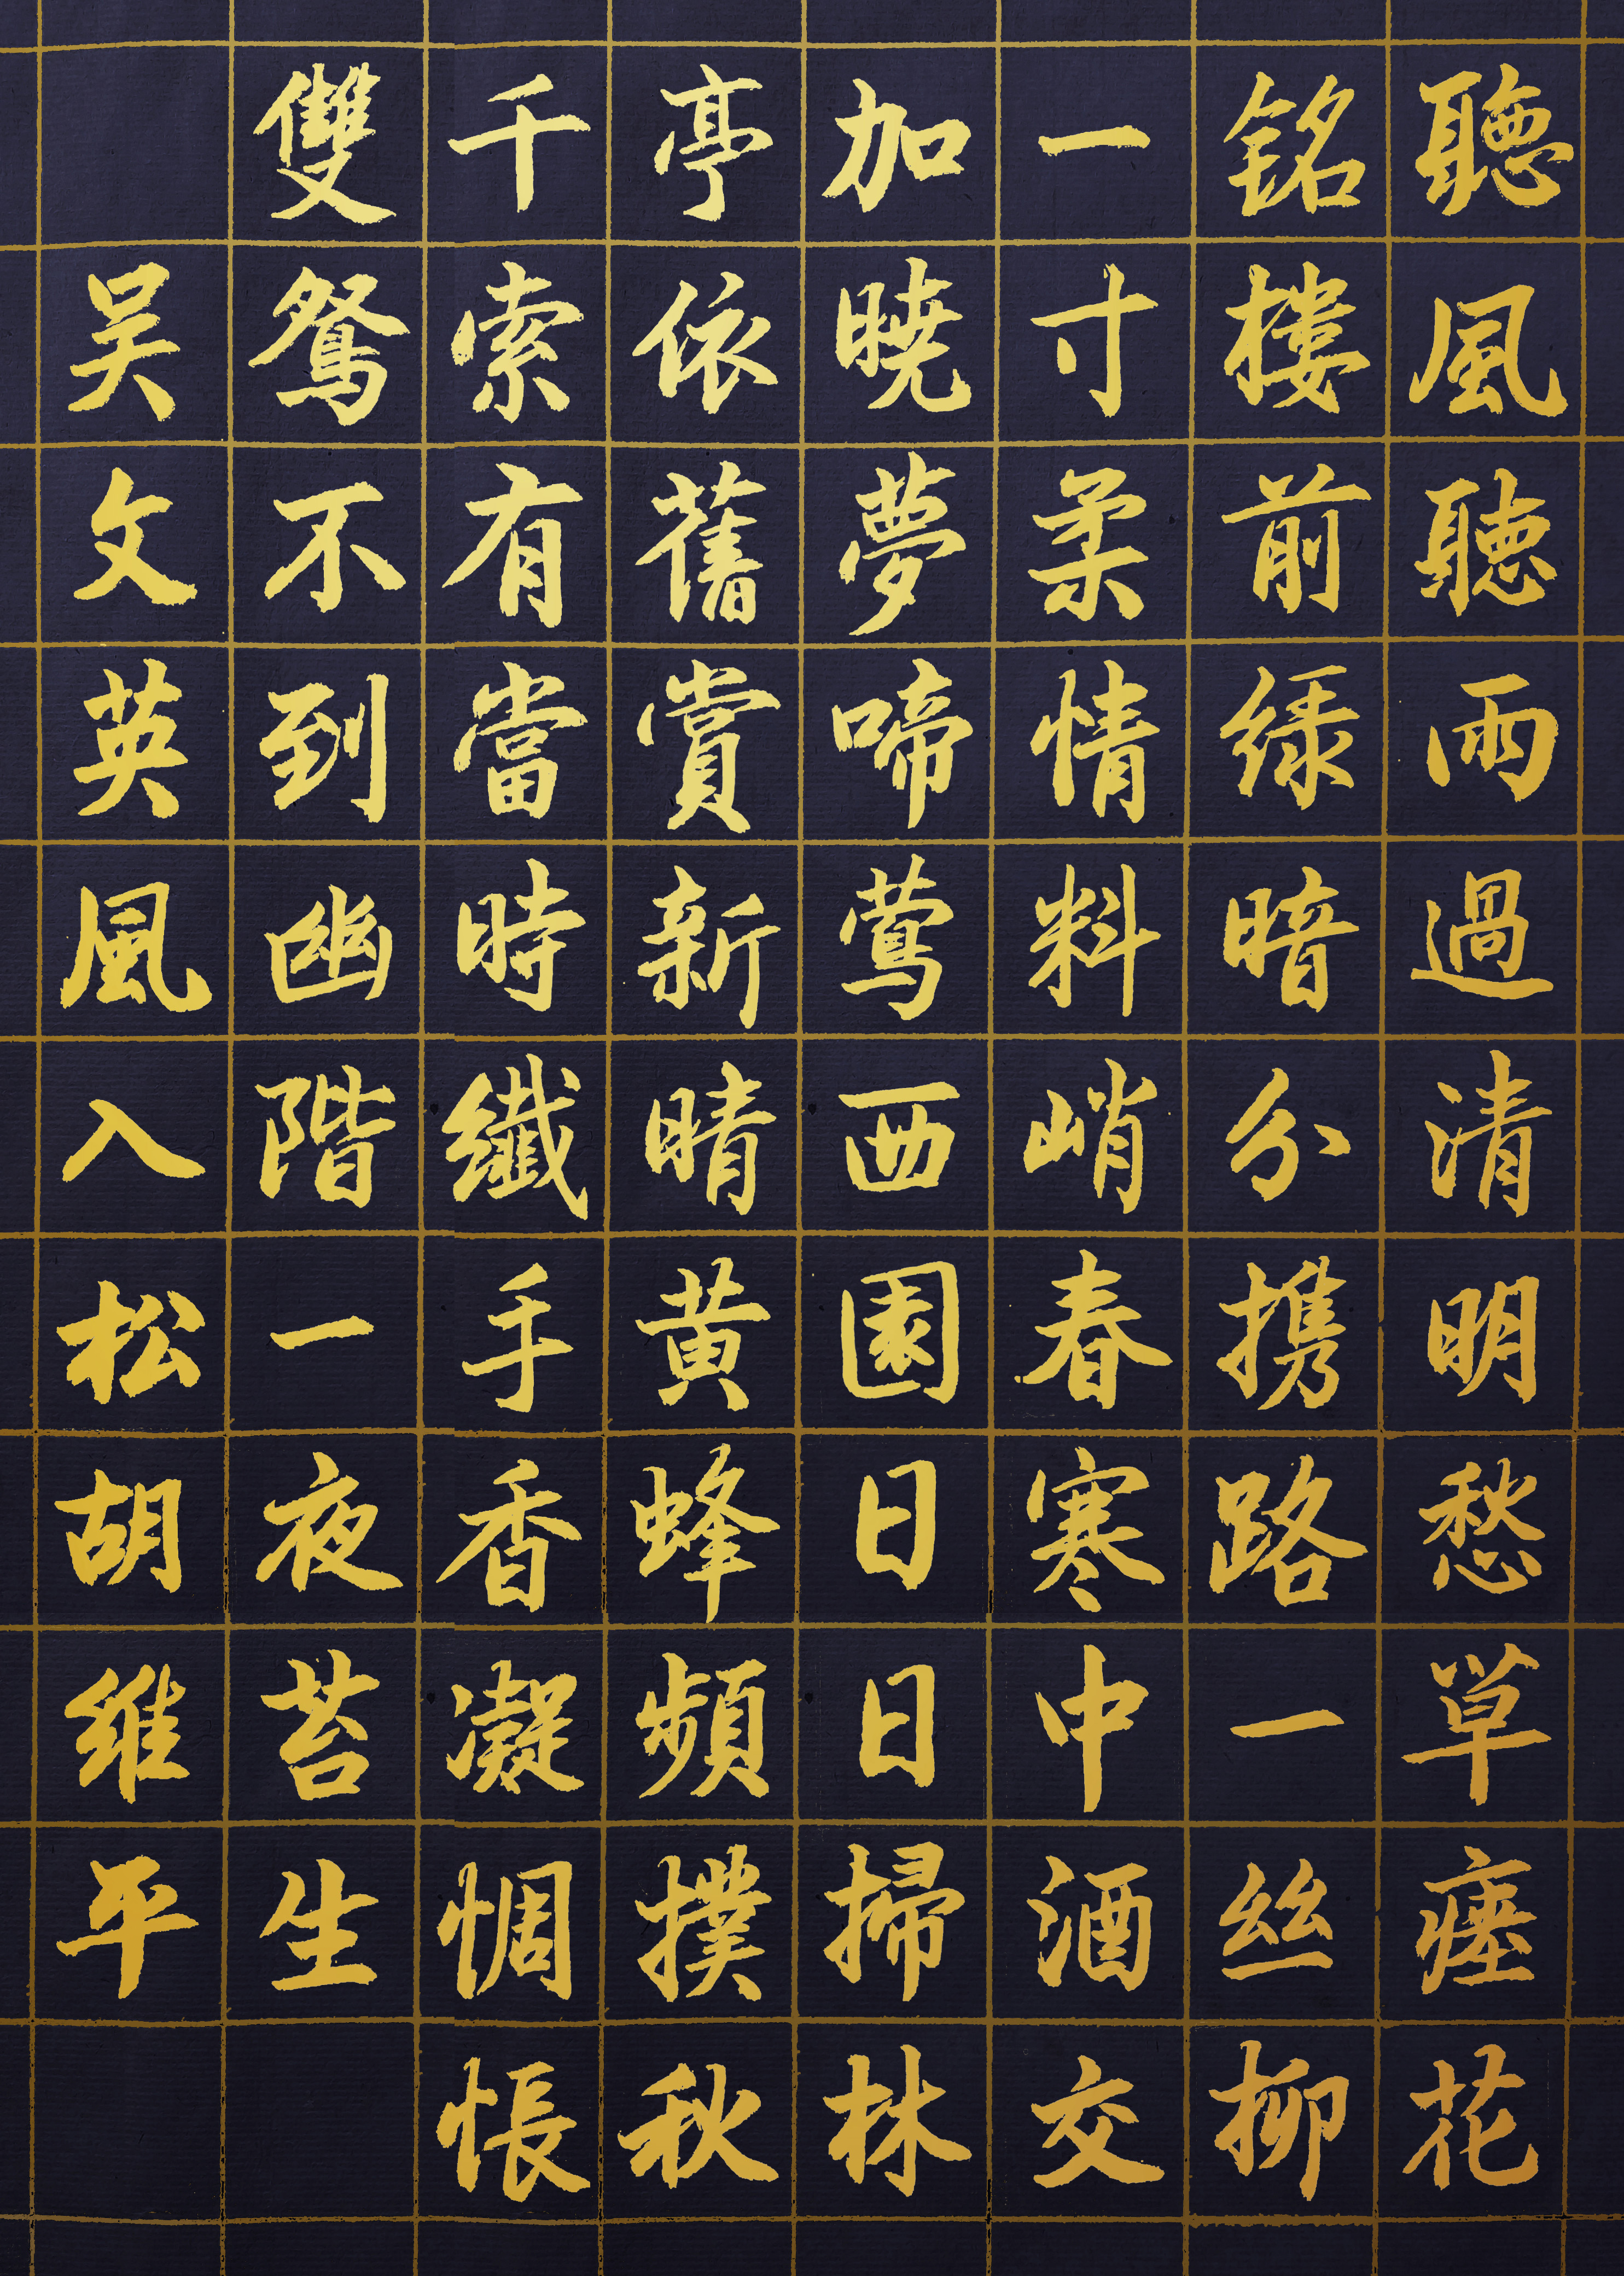 聽風聽雨過清明愁草瘞花
銘樓前緑暗分携路一絲柳
一寸柔情料峭春寒中酒交
加曉夢啼鶯西園日日掃林
亭依舊賞新晴黄蜂頻撲秋
千索有當時纖手香凝惆悵
雙鴛不到幽階一夜苔生
吴文英風入松胡維平